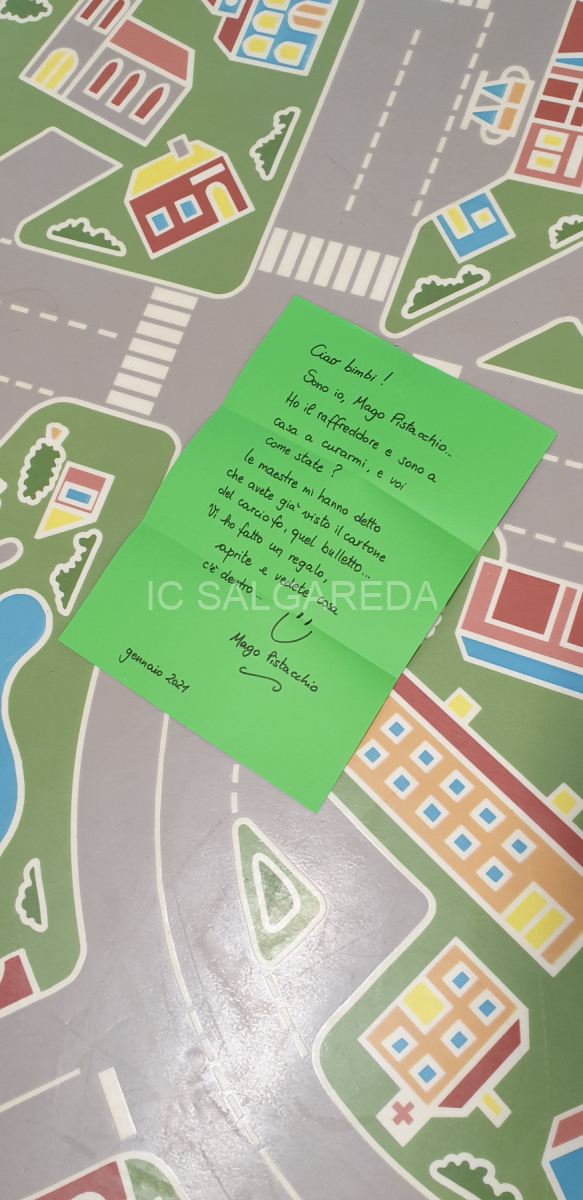 Ciao bimbi!
Sono io, Mago Pistacchio..
Ho il raffreddore e sono a
casa a curarmi, e voi
come state?
le maestre mi hanno detto
che avete già visto il cartone
del carciofo, quel bulletto...
Vi ho fatto un regalo,
aprite e vedete cosa
c'è dentro...
Mago Pistacchio
gennaio 2021
IC SALGAREDA